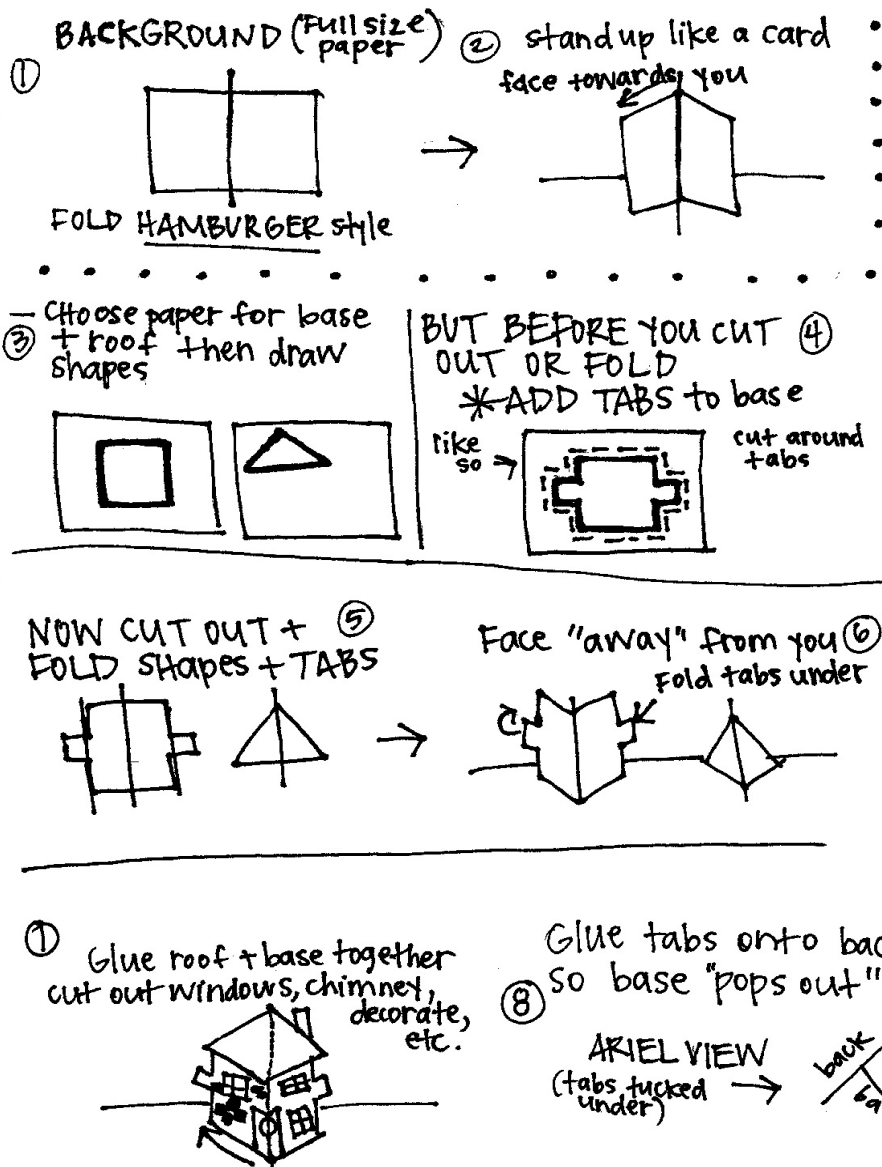 ① BACKGROUND (Full size paper)
FOLD HAMBURGER style
② stand up like a card
face towards you
③ — CHoose paper for base
+ roof then draw
shapes
BUT BEFORE YOU CUT ④
OUT OR FOLD
*ADD TABS to base
like so →
cut around
tabs
NOW CUT OUT + ⑤
FOLD SHapes + TABS
Face "away" from you ⑥
Fold tabs under
①
Glue roof + base together
cut out windows, chimney,
decorate,
etc.
Glue tabs onto bac
⑧ so base "pops out"
ARIEL VIEW
(tabs tucked
under)
back
ba